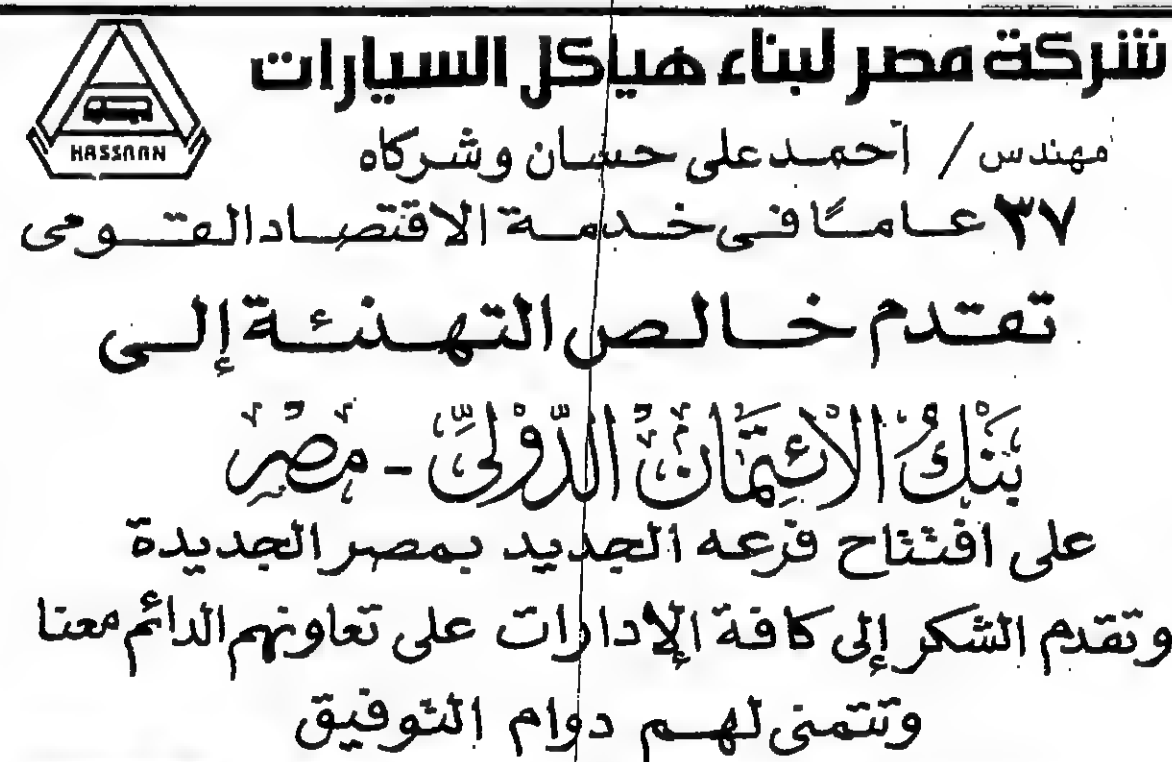 شركة مصر لبناء هياكل السيارات
HASSAAN
مهندس / أحمد على حسان وشركاه
٣٧ عامًا فى خدمة الاقتصاد القومى
تقدم خالص التهنئة إلى
بَنْكُ الْائِتِمَانُ الدَّوْلِىّ - مِصْر
على افتتاح فرعه الجديد بمصر الجديدة
وتقدم الشكر إلى كافة الإدارات على تعاونهم الدائم معنا
وتتمنى لهم دوام التوفيق